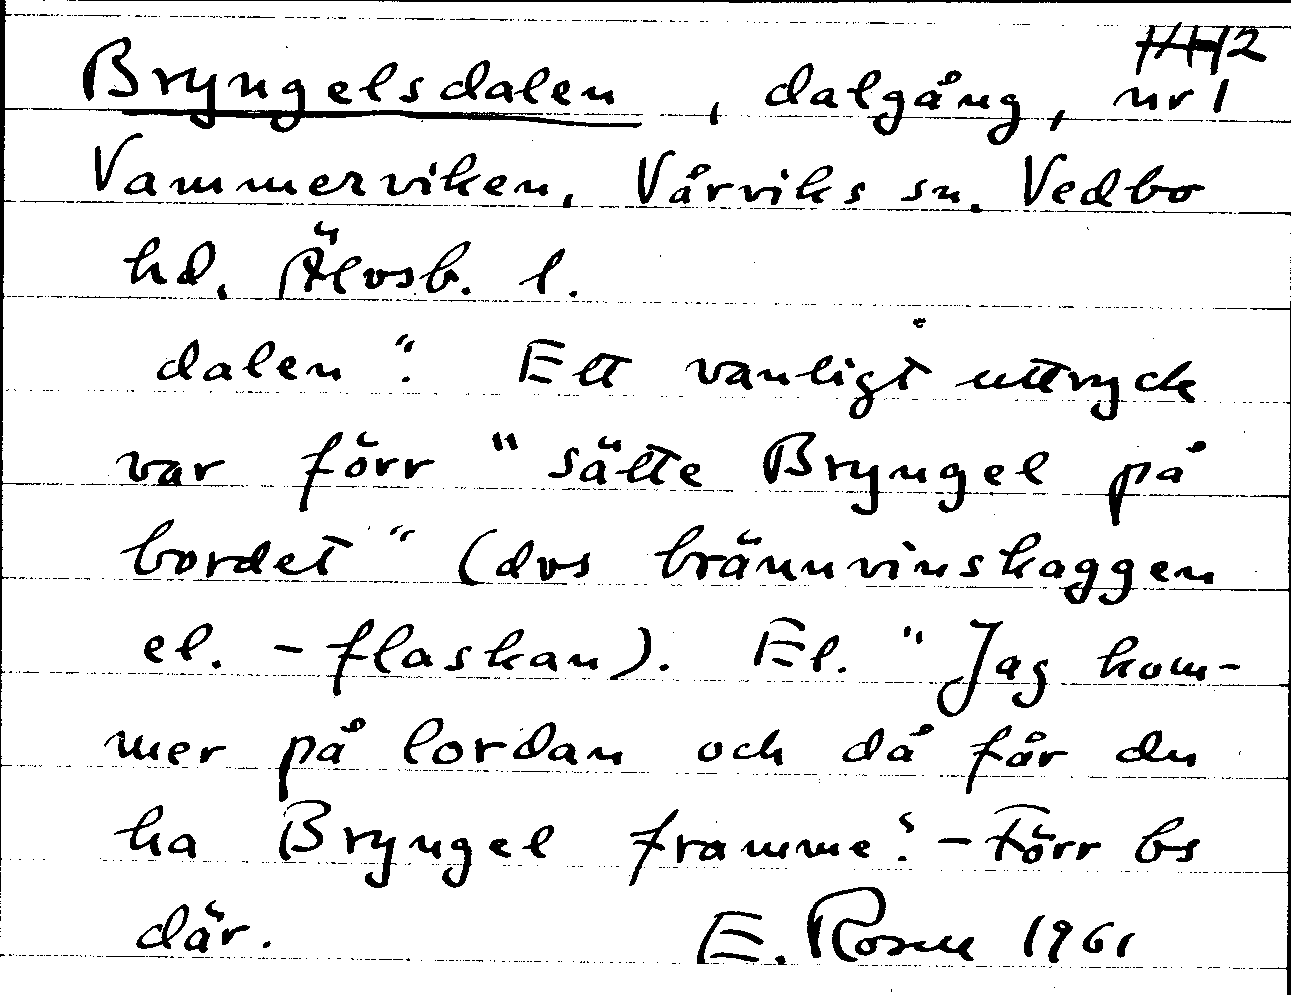 Bryngelsdalen, dalgång, nr 1
Vammerviken, Vårviks sn. Vedbo
hd, Älvsb. l.
dalen". Ett vanligt uttryck
var förr "sätte Bryngel på
bordet" (dvs brännvinskaggen
el. -flaskan). El. "Jag kom-
mer på lordan och då får du
ha Bryngel framme". - Förr bs
där. E. Rosell 1961